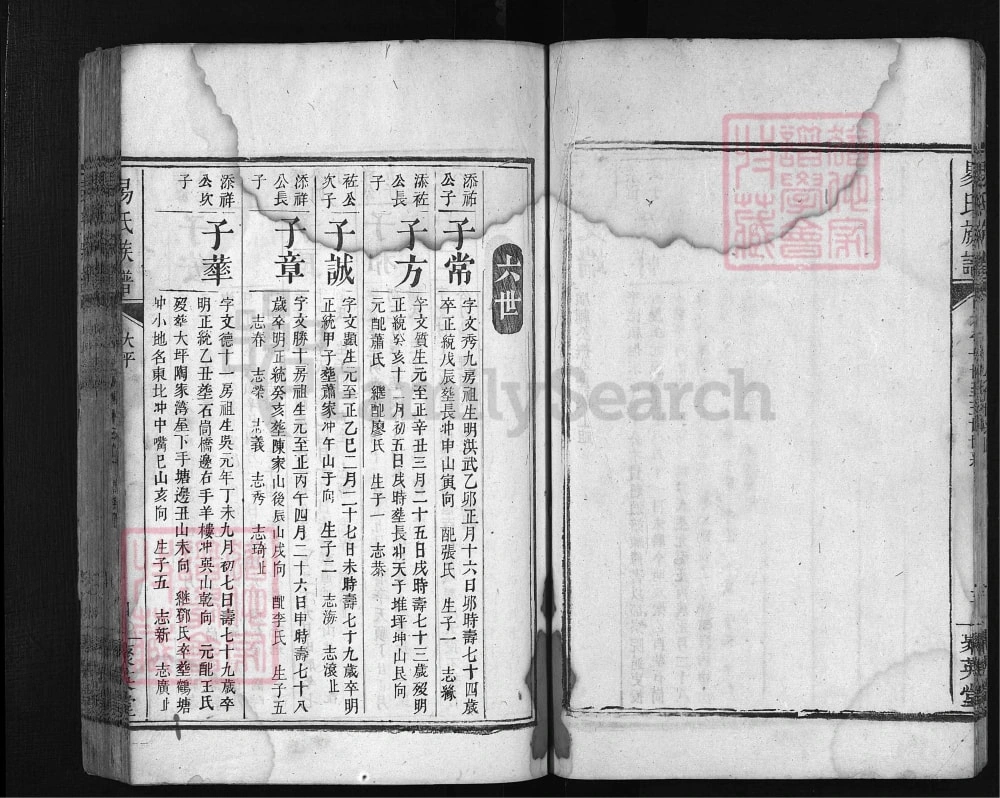 易氏族譜
聚英堂
六世
添祐公子
子常
字文秀九房祖生明洪武乙卯正月十六日卯時壽七十四歲
卒正統戊辰塟長冲申山寅向 配張氏 生子一 志緣
添祐公長子
子方
字文質生元至正辛丑三月二十五日戌時壽七十三歲歿明
正統癸亥十二月初五日戌時塟長冲天于堆坪坤山艮向
元配蕭氏 繼配廖氏 生子一 志恭
祐公次子
子誠
字文顯生元至正乙巳二月二十七日未時壽七十九歲卒明
正統甲子塟蕭家冲午山于向 生子二 志海 志滾止
添祥公長子
子章
字文勝十房祖生元至正丙午四月二十六日申時壽七十八
歲卒明正統癸亥塟陳家山後辰山戌向 配李氏 生子五
志春 志榮 志義 志秀 志琦止
添祥公次子
子華
字文德十一房祖生吳元年丁未九月初七日壽七十九歲卒
明正統乙丑塟石崗橋邊右手羊樓冲巽山乾向 元配王氏
歿葬大坪陶家湾屋下手塘邊丑山未向 繼鄧氏卒塟鶴塘
冲小地名東比冲中嘴巳山亥向 生子五 志新 志廣止
易氏族譜
聚英堂
FamilySearch